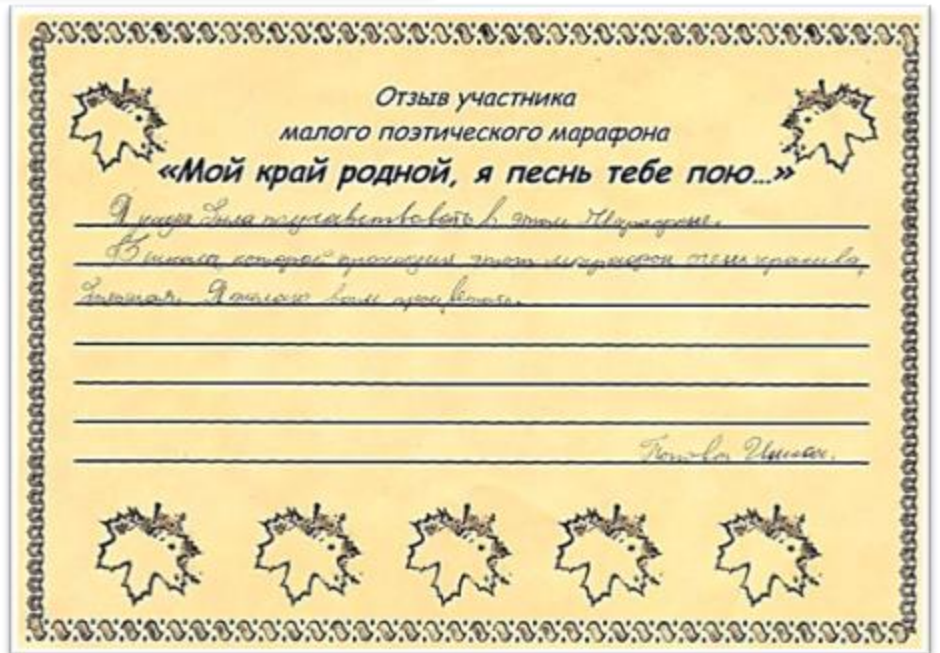 Отзыв участника
малого поэтического марафона
«Мой край родной, я песнь тебе пою...»
Я рада была поучаствовать в этом Марафоне.
В школы которой проходил этот марафон очень красива,
большая. Я желаю вам процветать.